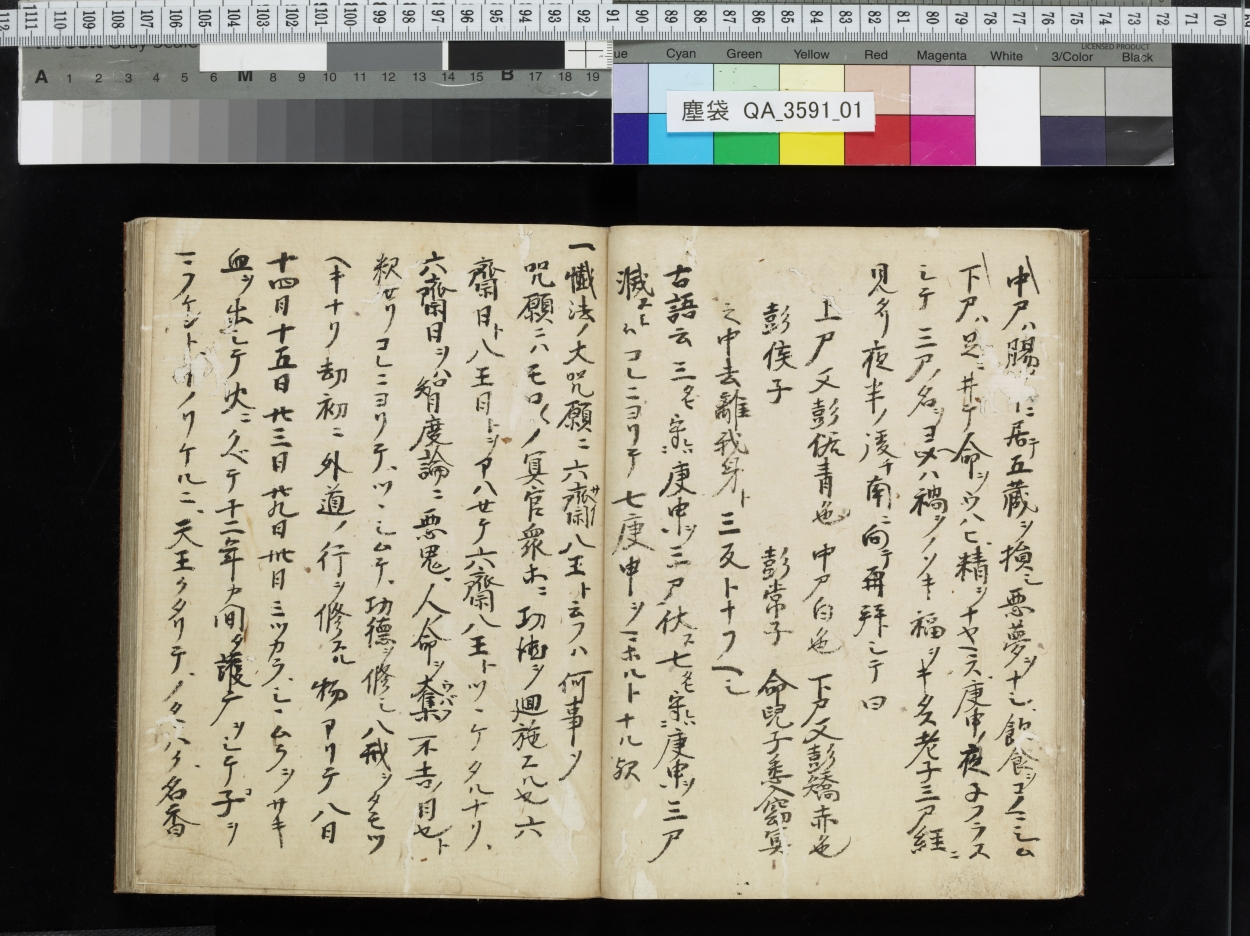 塵袋 QA_3591_01
Cyan Green Yellow Red Magenta White 3/Color Black
LICENSED PRODUCT
A 1 2 3 4 5 6 M 8 9 10 11 12 13 14 15 B 17 18 19
中尸ハ腸ニ居テ五蔵ヲ撿シ悪夢ヲナシ飲食ヲコノミシム
下尸ハ足ニ井テ命ヲウハヒ精ヲナヤマス庚申ノ夜子フラス
シテ三尸ノ名ヲヨヘハ禍ヲノソキ福ヲキタス老子三尸経ニ
見タリ夜半ノ後チ南ニ向テ再拝シテ曰
上尸又彭倨青色 中尸白色 下尸又彭矯赤色
彭侯子 彭常子 命児子悉入窈冥
之中去離我身ト三反トナフヘシ
古語云三タヒ守レハ庚申ヲ三尸伏ス七タヒ守レハ庚申ヲ三尸
滅スト コレニヨリテ七庚申ヲマホルトナル歟
一懺法ノ大咒願ニ六齋八王ト云フハ何事ソ
咒願ニハモロ〱ノ冥官衆ホニ功徳ヲ廻施スル也六
齋日ト八王日トヲアハセテ六齋八王トツヽケタルナリ、
六齋日ヲハ智度論ニ悪鬼、人命ヲ奪フ不吉ノ日也ト
釈セリコレニヨリテ、ツヽシムテ、功徳ヲ修シ八戒ヲタモツ
ヘキナリ劫初ニ外道ノ行ヲ修スル物アリテ八日
十四日十五日廿三日廿九日卅日ミツカラ、シヽムラヲサキ
血ヲ出シテ火ニクベテ十二年カ間タ護广ヲシテ子ヲ